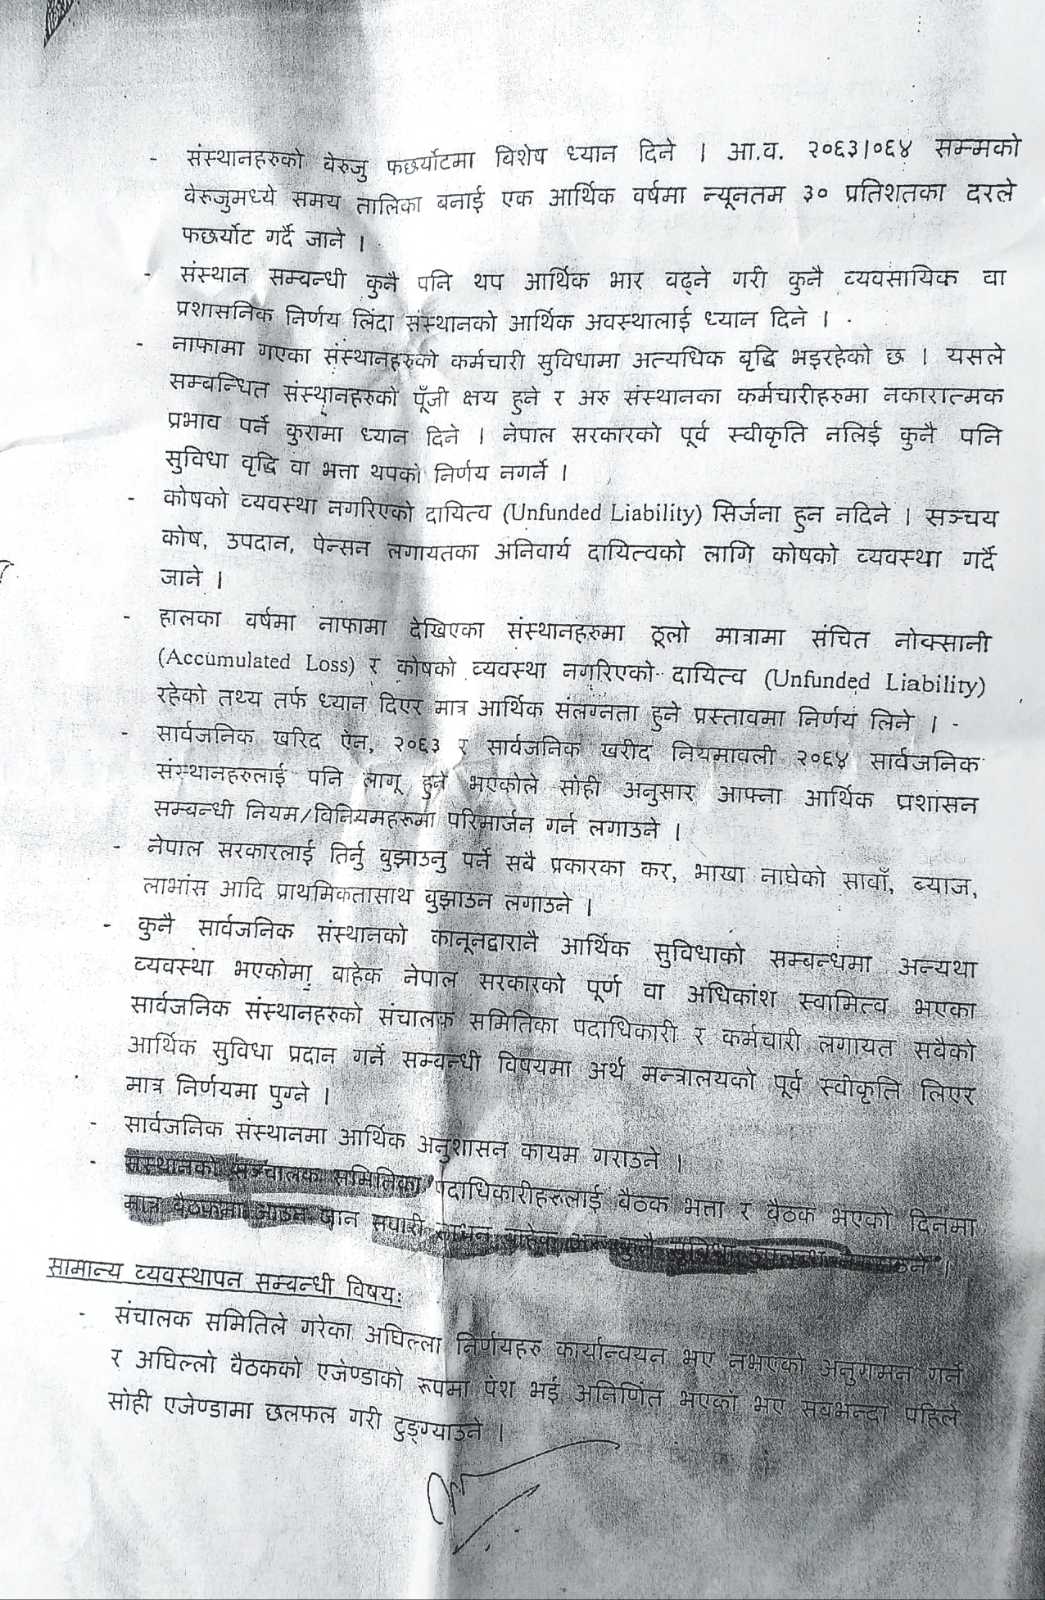 - संस्थानहरुको वेरुजु फछर्योटमा विशेष ध्यान दिने । आ.व. २०६३।०६४ सम्मको
वेरुजुमध्ये समय तालिका बनाई एक आर्थिक वर्षमा न्यूनतम ३० प्रतिशतका दरले
फछर्योट गर्दै जाने ।
- संस्थान सम्बन्धी कुनै पनि थप आर्थिक भार वढ्ने गरी कुनै व्यवसायिक वा
प्रशासनिक निर्णय लिंदा संस्थानको आर्थिक अवस्थालाई ध्यान दिने ।
- नाफामा गएका संस्थानहरुको कर्मचारी सुविधामा अत्यधिक बृद्धि भइरहेको छ । यसले
सम्बन्धित संस्थानहरुको पूँजी क्षय हुने र अरु संस्थानका कर्मचारीहरुमा नकारात्मक
प्रभाव पर्ने कुरामा ध्यान दिने । नेपाल सरकारको पूर्व स्वीकृति नलिई कुनै पनि
सुविधा वृद्धि वा भत्ता थपको निर्णय नगर्ने ।
- कोषको व्यवस्था नगरिएको दायित्व (Unfunded Liability) सिर्जना हुन नदिने । सञ्चय
कोष, उपदान, पेन्सन लगायतका अनिवार्य दायित्वको लागि कोषको व्यवस्था गर्दै
जाने ।
- हालका वर्षमा नाफामा देखिएका संस्थानहरुमा ठूलो मात्रामा संचित नोक्सानी
(Accumulated Loss) र कोषको व्यवस्था नगरिएको दायित्व (Unfunded Liability)
रहेको तथ्य तर्फ ध्यान दिएर मात्र आर्थिक संलग्नता हुने प्रस्तावमा निर्णय लिने ।
- सार्वजनिक खरिद ऐन, २०६३ र सार्वजनिक खरीद नियमावली २०६४ सार्वजनिक
संस्थानहरुलाई पनि लागू हुने भएकोले सोही अनुसार आफ्ना आर्थिक प्रशासन
सम्बन्धी नियम/विनियमहरुमा परिमार्जन गर्न लगाउने ।
- नेपाल सरकारलाई तिर्नु वुझाउनु पर्ने सबै प्रकारका कर, भाखा नाघेको सावाँ, ब्याज,
लाभांस आदि प्राथमिकतासाथ वुझाउन लगाउने ।
- कुनै सार्वजनिक संस्थानको कानूनद्वारानै आर्थिक सुविधाको सम्बन्धमा अन्यथा
व्यवस्था भएकोमा वाहेक नेपाल सरकारको पूर्ण वा अधिकांश स्वामित्व भएका
सार्वजनिक संस्थानहरुको संचालक समितिका पदाधिकारी र कर्मचारी लगायत सवैको
आर्थिक सुविधा प्रदान गर्ने सम्बन्धी विषयमा अर्थ मन्त्रालयको पूर्व स्वीकृति लिएर
मात्र निर्णयमा पुग्ने ।
- सार्वजनिक संस्थानमा आर्थिक अनुशासन कायम गराउने ।
- संस्थानको सञ्चालक समितिका पदाधिकारीहरुलाई बैठक भत्ता र बैठक भएको दिनमा
मात्र बैठकमा आउन जान सवारी साधन वाहेक अरु कुनै सुविधा
सामान्य व्यवस्थापन सम्बन्धी विषय:
- संचालक समितिले गरेका अघिल्ला निर्णयहरु कार्यान्वयन भए नभएको अनुगमन गर्ने
र अघिल्लो वैठकको एजेण्डाको रूपमा पेश भई अनिर्णित भएको भए सवभन्दा पहिले
सोही एजेण्डामा छलफल गरी टुङ्ग्याउने ।